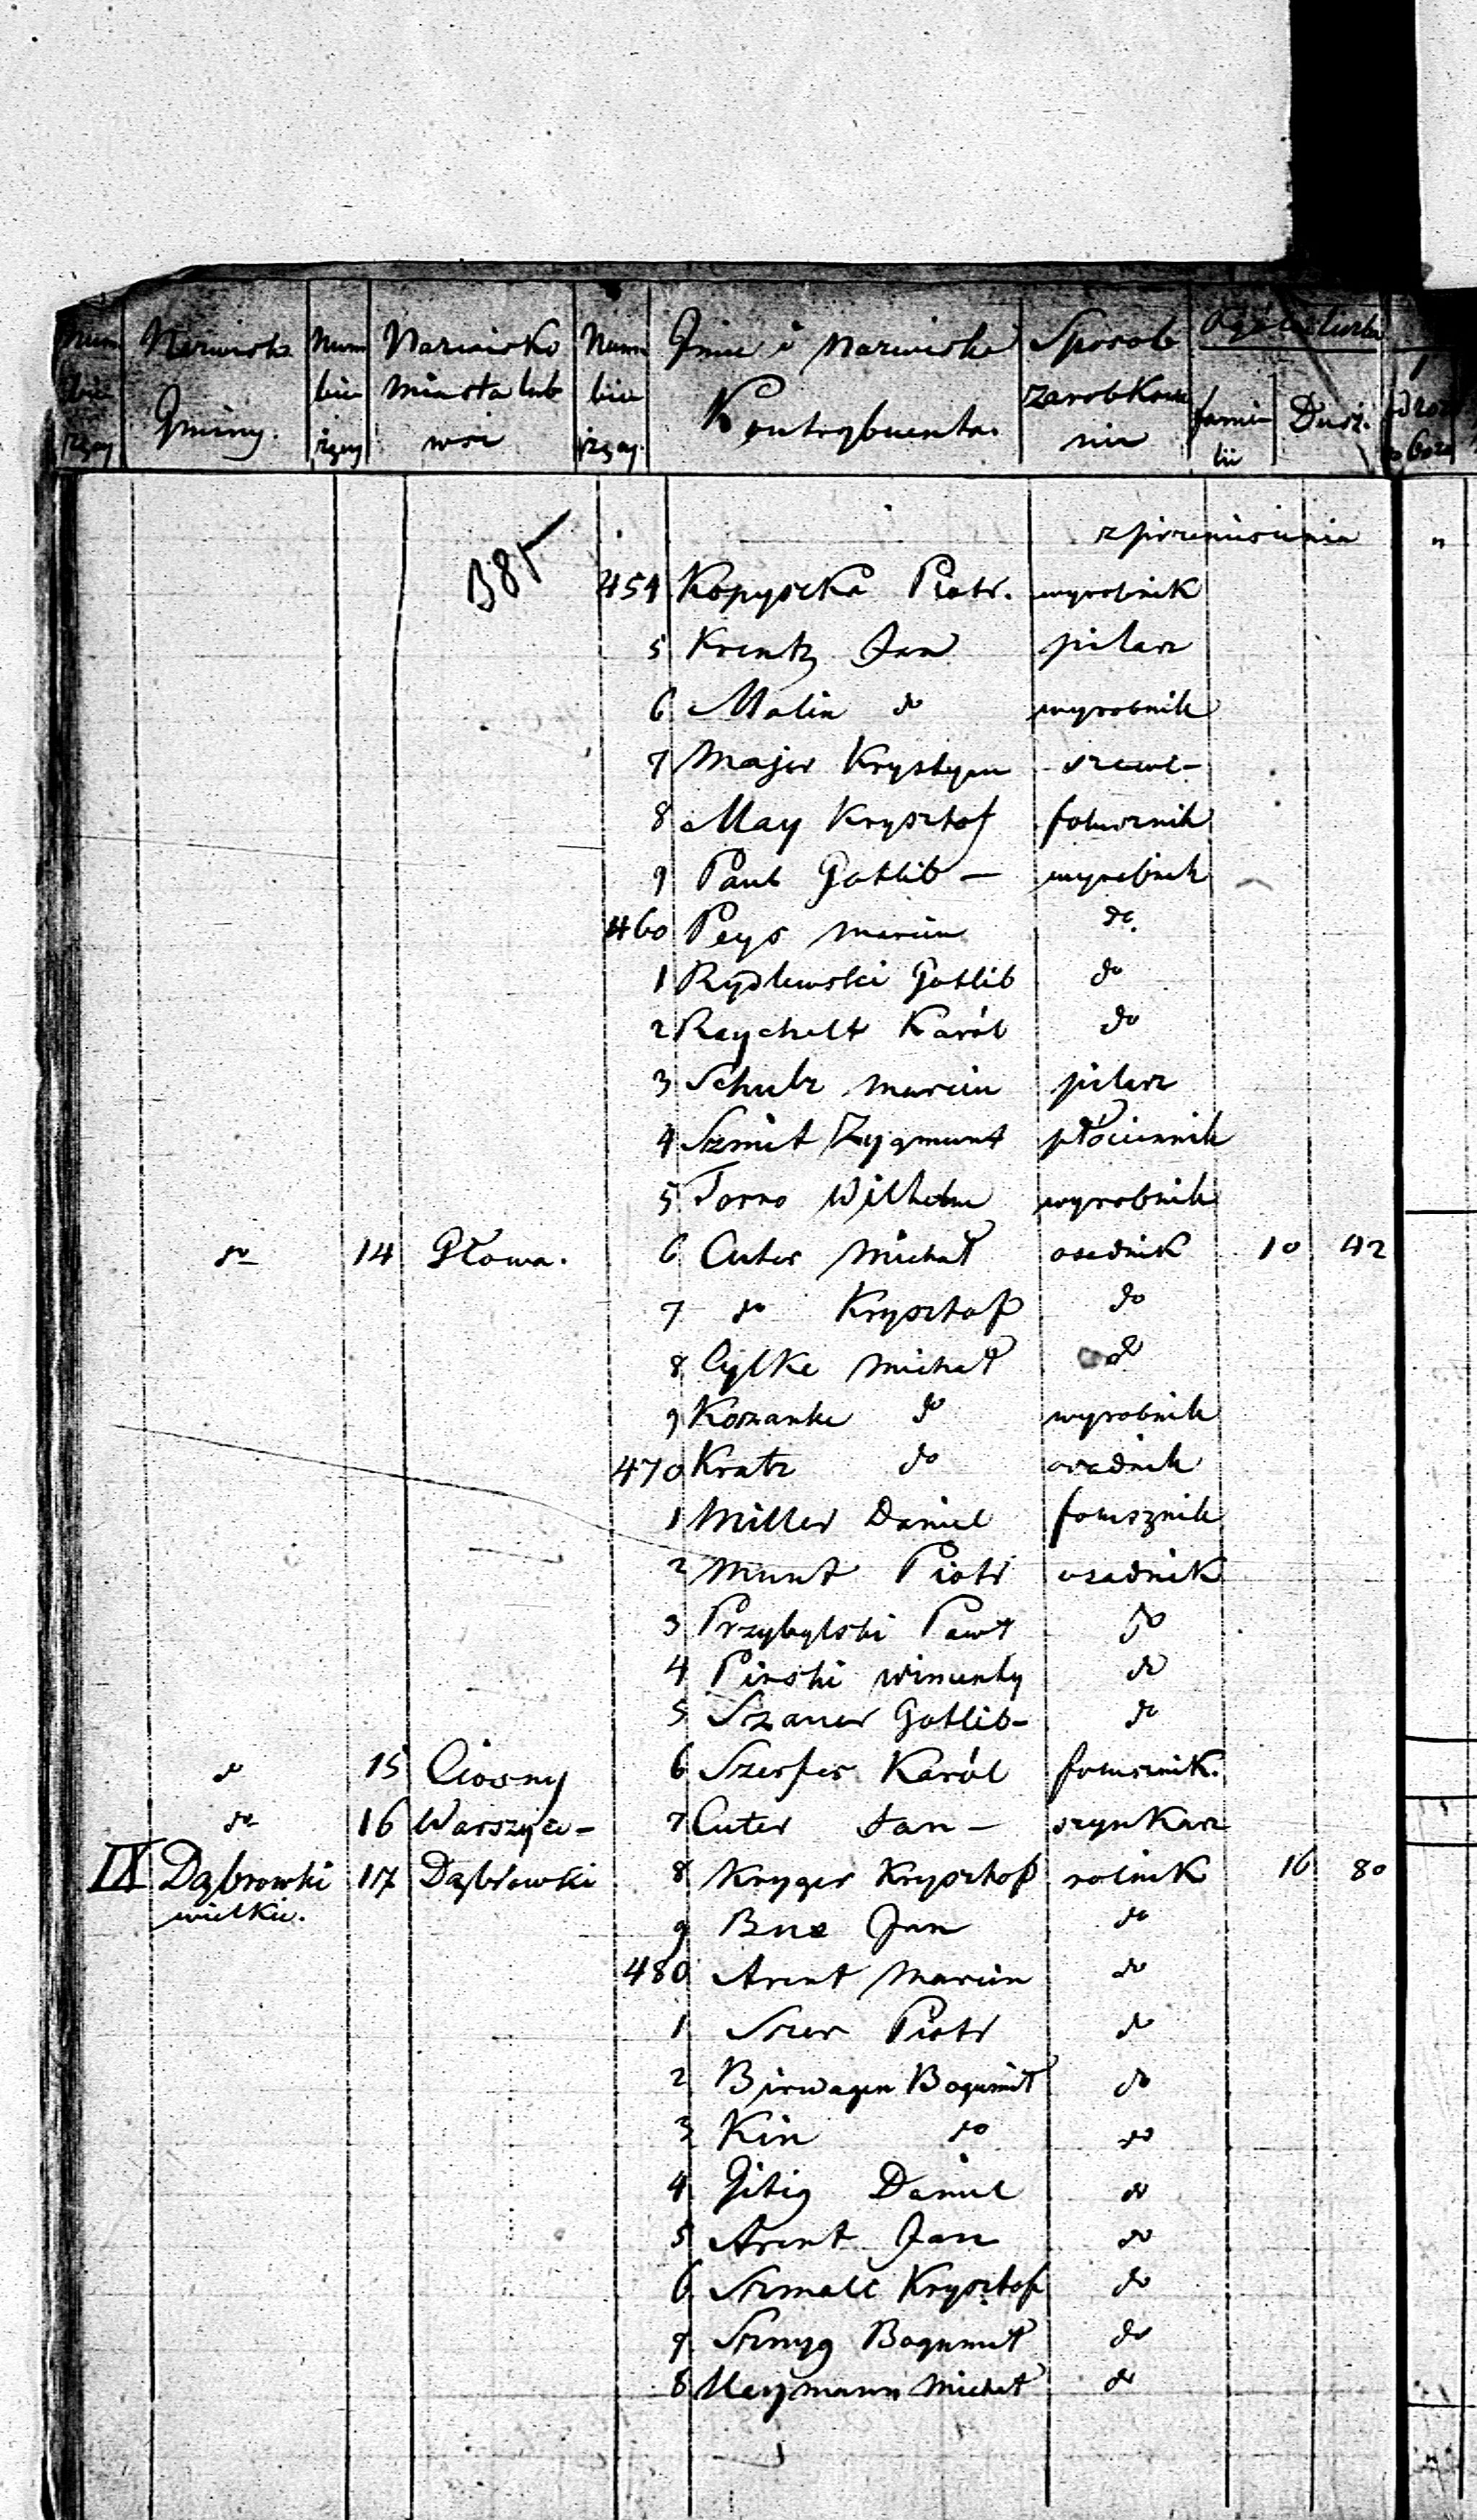 Num Nazwisko Num Nazwisko Num Jmie i Nazwisko Sposob Ogół ludzi
bie Gminy. bie miasta lub bie Kontrybuenta. zarobkowa familii Dusz.
żący żący wsi żący nia
z przeniesienia "
454 Kopyszka Piotr. wyrobnik
5 Krentz Jan pilarz
6 Malin do wyrobnik
7 Majer Krystyan szewc
8 May Krysztof folusznik
9 Paul Gotlib — wyrobnik
460 Peys Marcin do
1 Rydlewski Gotlib do
2 Raychelt Karól do
3 Schulz Marcin pilarz
4 Szmit Zygmunt płóciennik
5 Torno Wilhelm wyrobnik
do 14 Głowa. 6 Cuter Michał osadnik 10 42
7 do Krysztof do
8 Cylke Michał do
9 Kozanke do wyrobnik
470 Kratz do osadnik
1 Miller Daniel folusznik
2 Munt Piotr osadnik
3 Przybylski Paweł do
4 Pinski Wincenty do
5 Szauer Gotlib — do
do 15 Ciosny 6 Szerfer Karól folusznik.
do 16 Warszyce — 7 Cuter Jan — szynkarz
IX Dąbrowki 117 Dąbrowki 8 Kryger Krysztof rolnik 16 80
wielkie. 9 Buse Jan do
480 Arent Marcin do
1 Szer Piotr do
2 Birwagen Bogumił do
3 Kin do do
4 Gitig Daniel do
5 Arent Jan do
6 Szmalc Krysztof do
7 Szmyg Bogumił do
8 Neymann Michał do